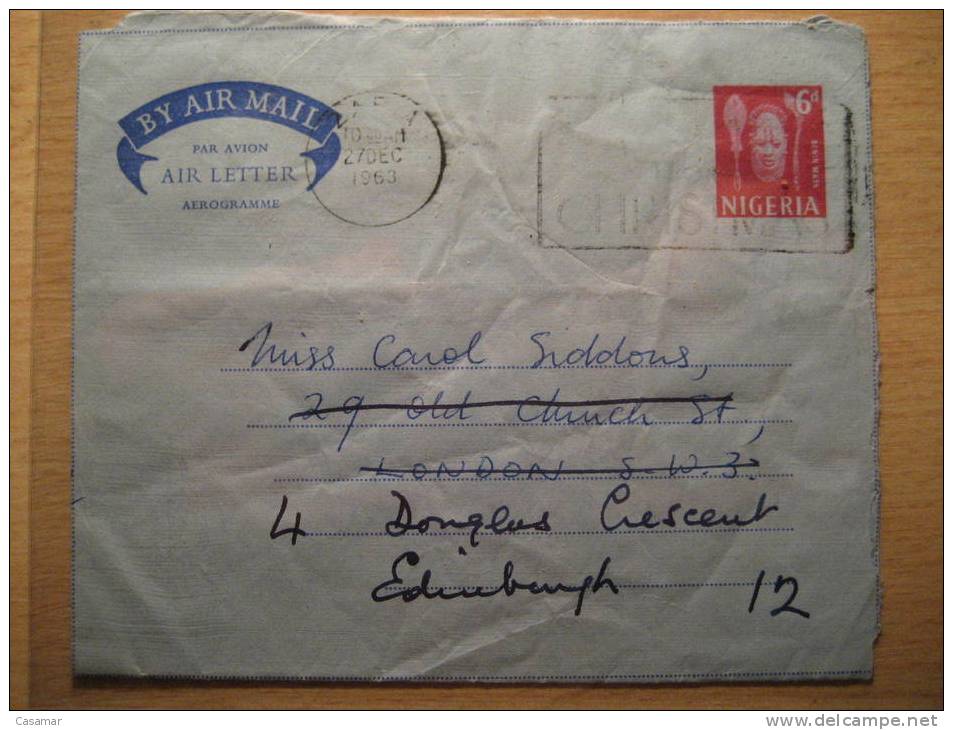 BY AIR MAIL
PAR AVION
AIR LETTER
AEROGRAMME
27 DEC
1963
6d
BENIN MASK
NIGERIA
CHRISTMAS
Miss Carol Siddons,
29 Old Church St,
LONDON S.W.3.
4 Douglas Crescent
Edinburgh 12
Casamar
www.delcampe.net